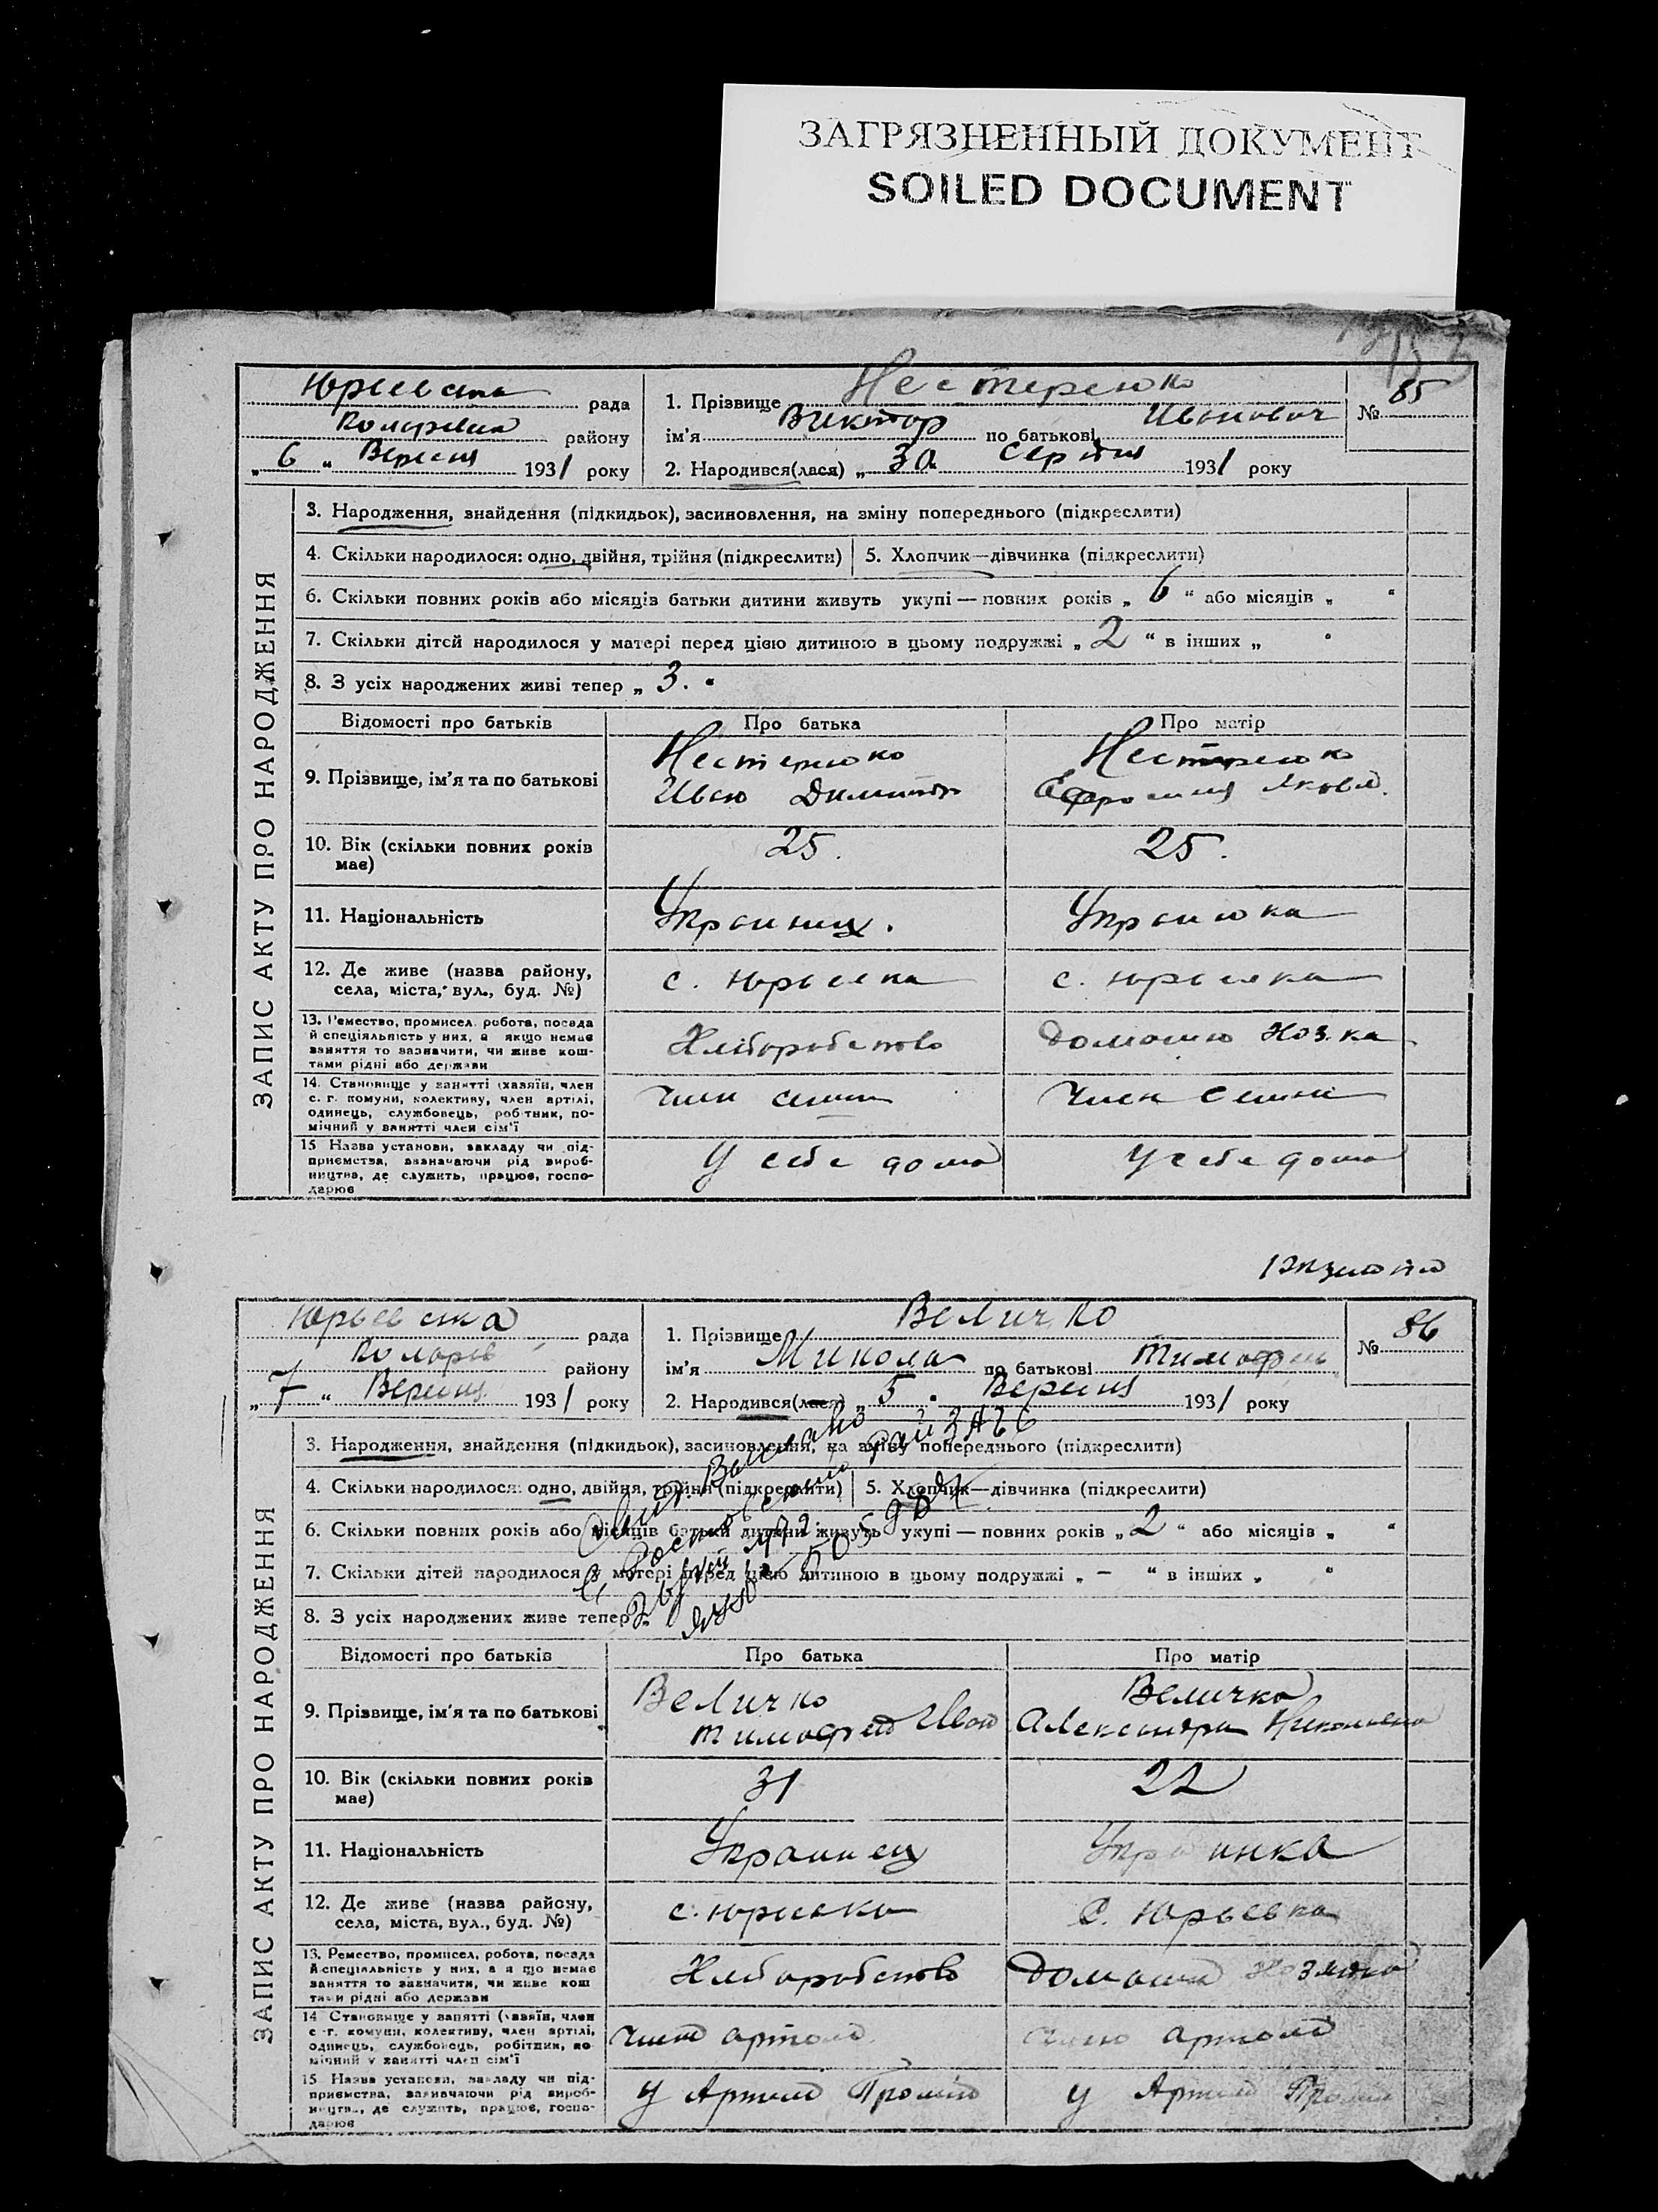 ЗАГРЯЗНЕННЫЙ ДОКУМЕНТ
SOILED DOCUMENT
ЗАПИС АКТУ ПРО НАРОДЖЕННЯ
Юрьевска рада
району
„ 6 “ Вересня 1931 року
1. Прізвище Нестеренко
ім'я Виктор по батькові Иванович
2. Народився(лася) „ 30 Серпня 1931 року
№ 85
3. Народження, знайдення (підкидьок), засиновлення, на зміну попереднього (підкреслити)
4. Скільки народилося: одно, двійня, трійня (підкреслити) 5. Хлопчик—дівчинка (підкреслити)
6. Скільки повних років або місяців батьки дитини живуть укупі — повних років „ 6 “ або місяців „ “
7. Скільки дітей народилося у матері перед цією дитиною в цьому подружжі „ 2 “ в інших „ “
8. З усіх народжених живі тепер „ 3. “
Відомості про батьків Про батька Про матір
9. Прізвище, ім'я та по батькові
Нестеренко
Иван Димитр
Нестеренко
Ефросиния Яковл.
10. Вік (скільки повних років має) 25. 25.
11. Національність Украинец. Украинка
12. Де живе (назва району,
села, міста, вул., буд. №)
с. Юрьевка с. Юрьевка
13. Ремество, промисел, робота, посада
й спеціяльність у них, а якщо немає
заняття то зазначити, чи живе кош-
тами рідні або держави
Хлiборобство Домашню Хоз.ка
14. Становище у занятті (хазяїн, член
с. г. комуни, колективу, член артілі,
одинець, службовець, робітник, по-
мічний у занятті член сім'ї
Член семии Член Семии
15 Назва установи, закладу чи під-
приємства, зазначаючи рід вироб-
ництва, де служить, працює, госпо-
дарює
У себе дома У себе дома
ЗАПИС АКТУ ПРО НАРОДЖЕННЯ
Юрьевска рада
Комарів району
„ 7 “ Вересня 1931 року
1. Прізвище Величко
ім'я Микола по батькові Тимофеи
2. Народився(лася) „ 5 “ Вересня 1931 року
№ 86
3. Народження, знайдення (підкидьок), засиновлення, на зміну попереднього (підкреслити)
4. Скільки народилося: одно, двійня, трійня (підкреслити) 5. Хлопчик—дівчинка (підкреслити)
6. Скільки повних років або місяців батьки дитини живуть укупі — повних років „ 2 “ або місяців „ “
7. Скільки дітей народилося у матері перед цією дитиною в цьому подружжі „ – “ в інших „ “
8. З усіх народжених живе тепер
Відомості про батьків Про батька Про матір
9. Прізвище, ім'я та по батькові
Величко
Тимофей Иван
Величко
Александра Николаевна
10. Вік (скільки повних років має) 31 22
11. Національність Украинец Украинка
12. Де живе (назва району,
села, міста, вул., буд. №)
с. Юрьевка с. Юрьевка
13. Ремество, промисел, робота, посада
й спеціяльність у них, а якщо немає
заняття то зазначити, чи живе кош
тами рідні або держави
Хлiборобство Домашня
14 Становище у занятті (хазяїн, член
с.-г. комуни, колективу, член артілі,
одинець, службовець, робітник, по
мічний у занятті член сім'ї
Член артели Член артели
15 Назва установи, закладу чи під-
приємства, зазначаючи рід вироб-
ництва, де служить, працює, госпо-
дарює
У Артели У Артели